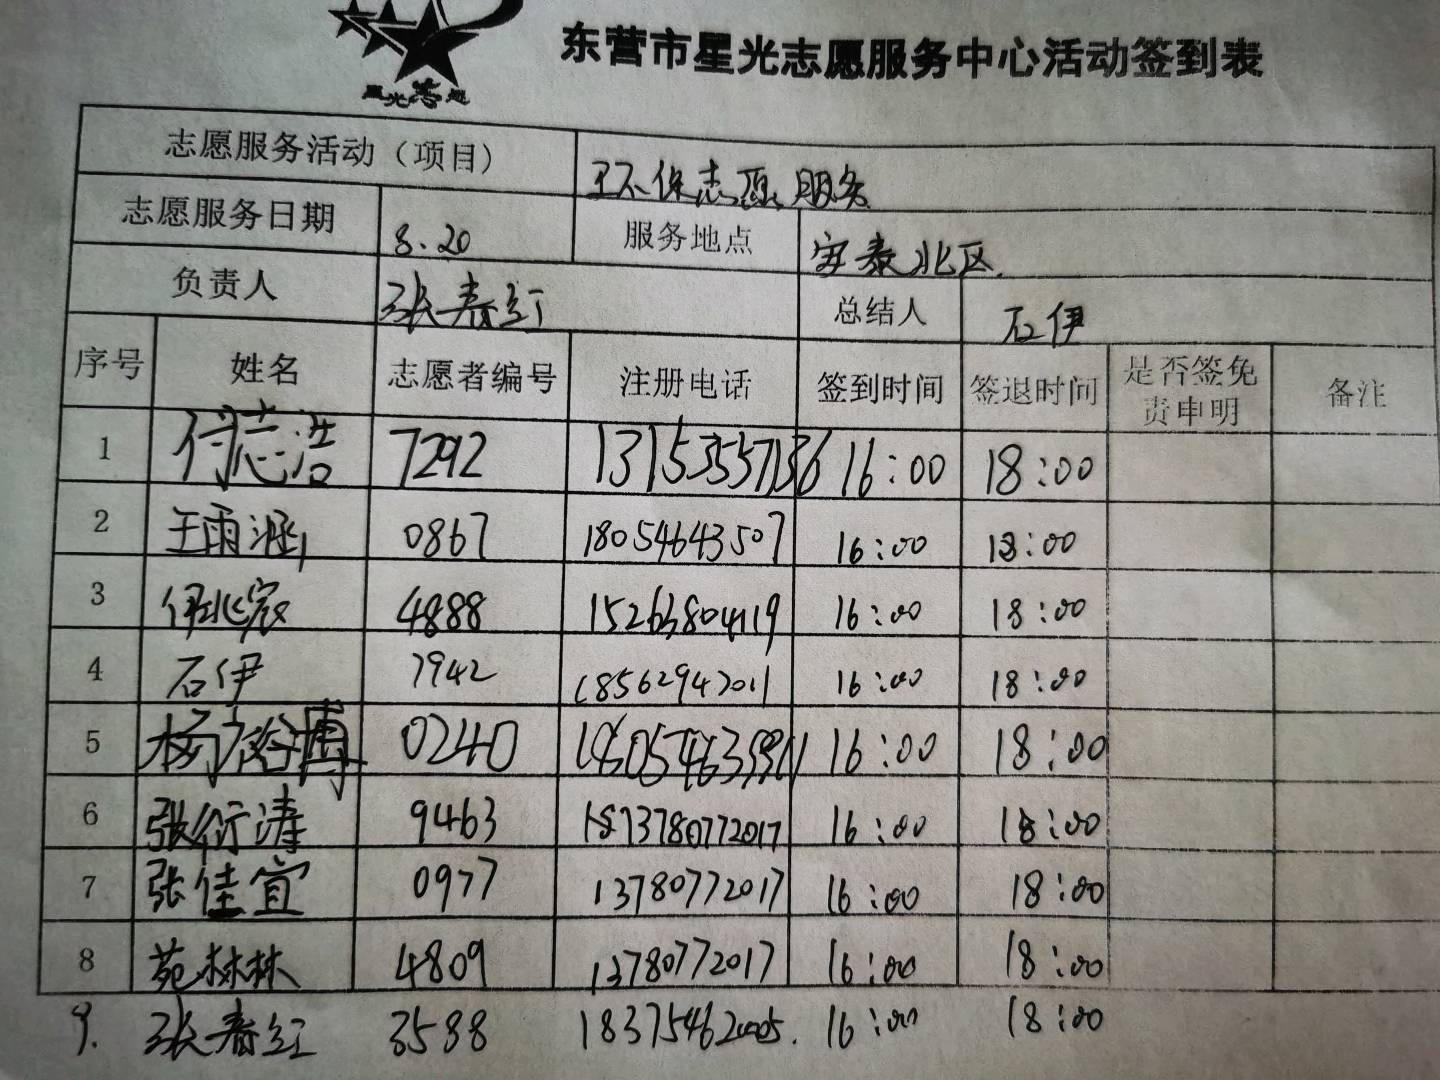 星光志愿
东营市星光志愿服务中心活动签到表
志愿服务活动（项目） 环保志愿服务
志愿服务日期 8.20 服务地点 安泰北区.
负责人 张春红 总结人 石伊
序号 姓名 志愿者编号 注册电话 签到时间 签退时间 是否签免责申明 备注
1 付志浩 7292 13153557136 16:00 18:00
2 王雨涵 0867 18054643507 16:00 18:00
3 伊兆宸 4888 15263804119 16:00 18:00
4 石伊 7942 18562942011 16:00 18:00
5 杨裕博 0240 16:00 18:00
6 张衍涛 9463 13780772017 16:00 18:00
7 张佳宜 0977 13780772017 16:00 18:00
8 苑林林 4809 13780772017 16:00 18:00
9. 张春红 3588 18375462005. 16:00 18:00